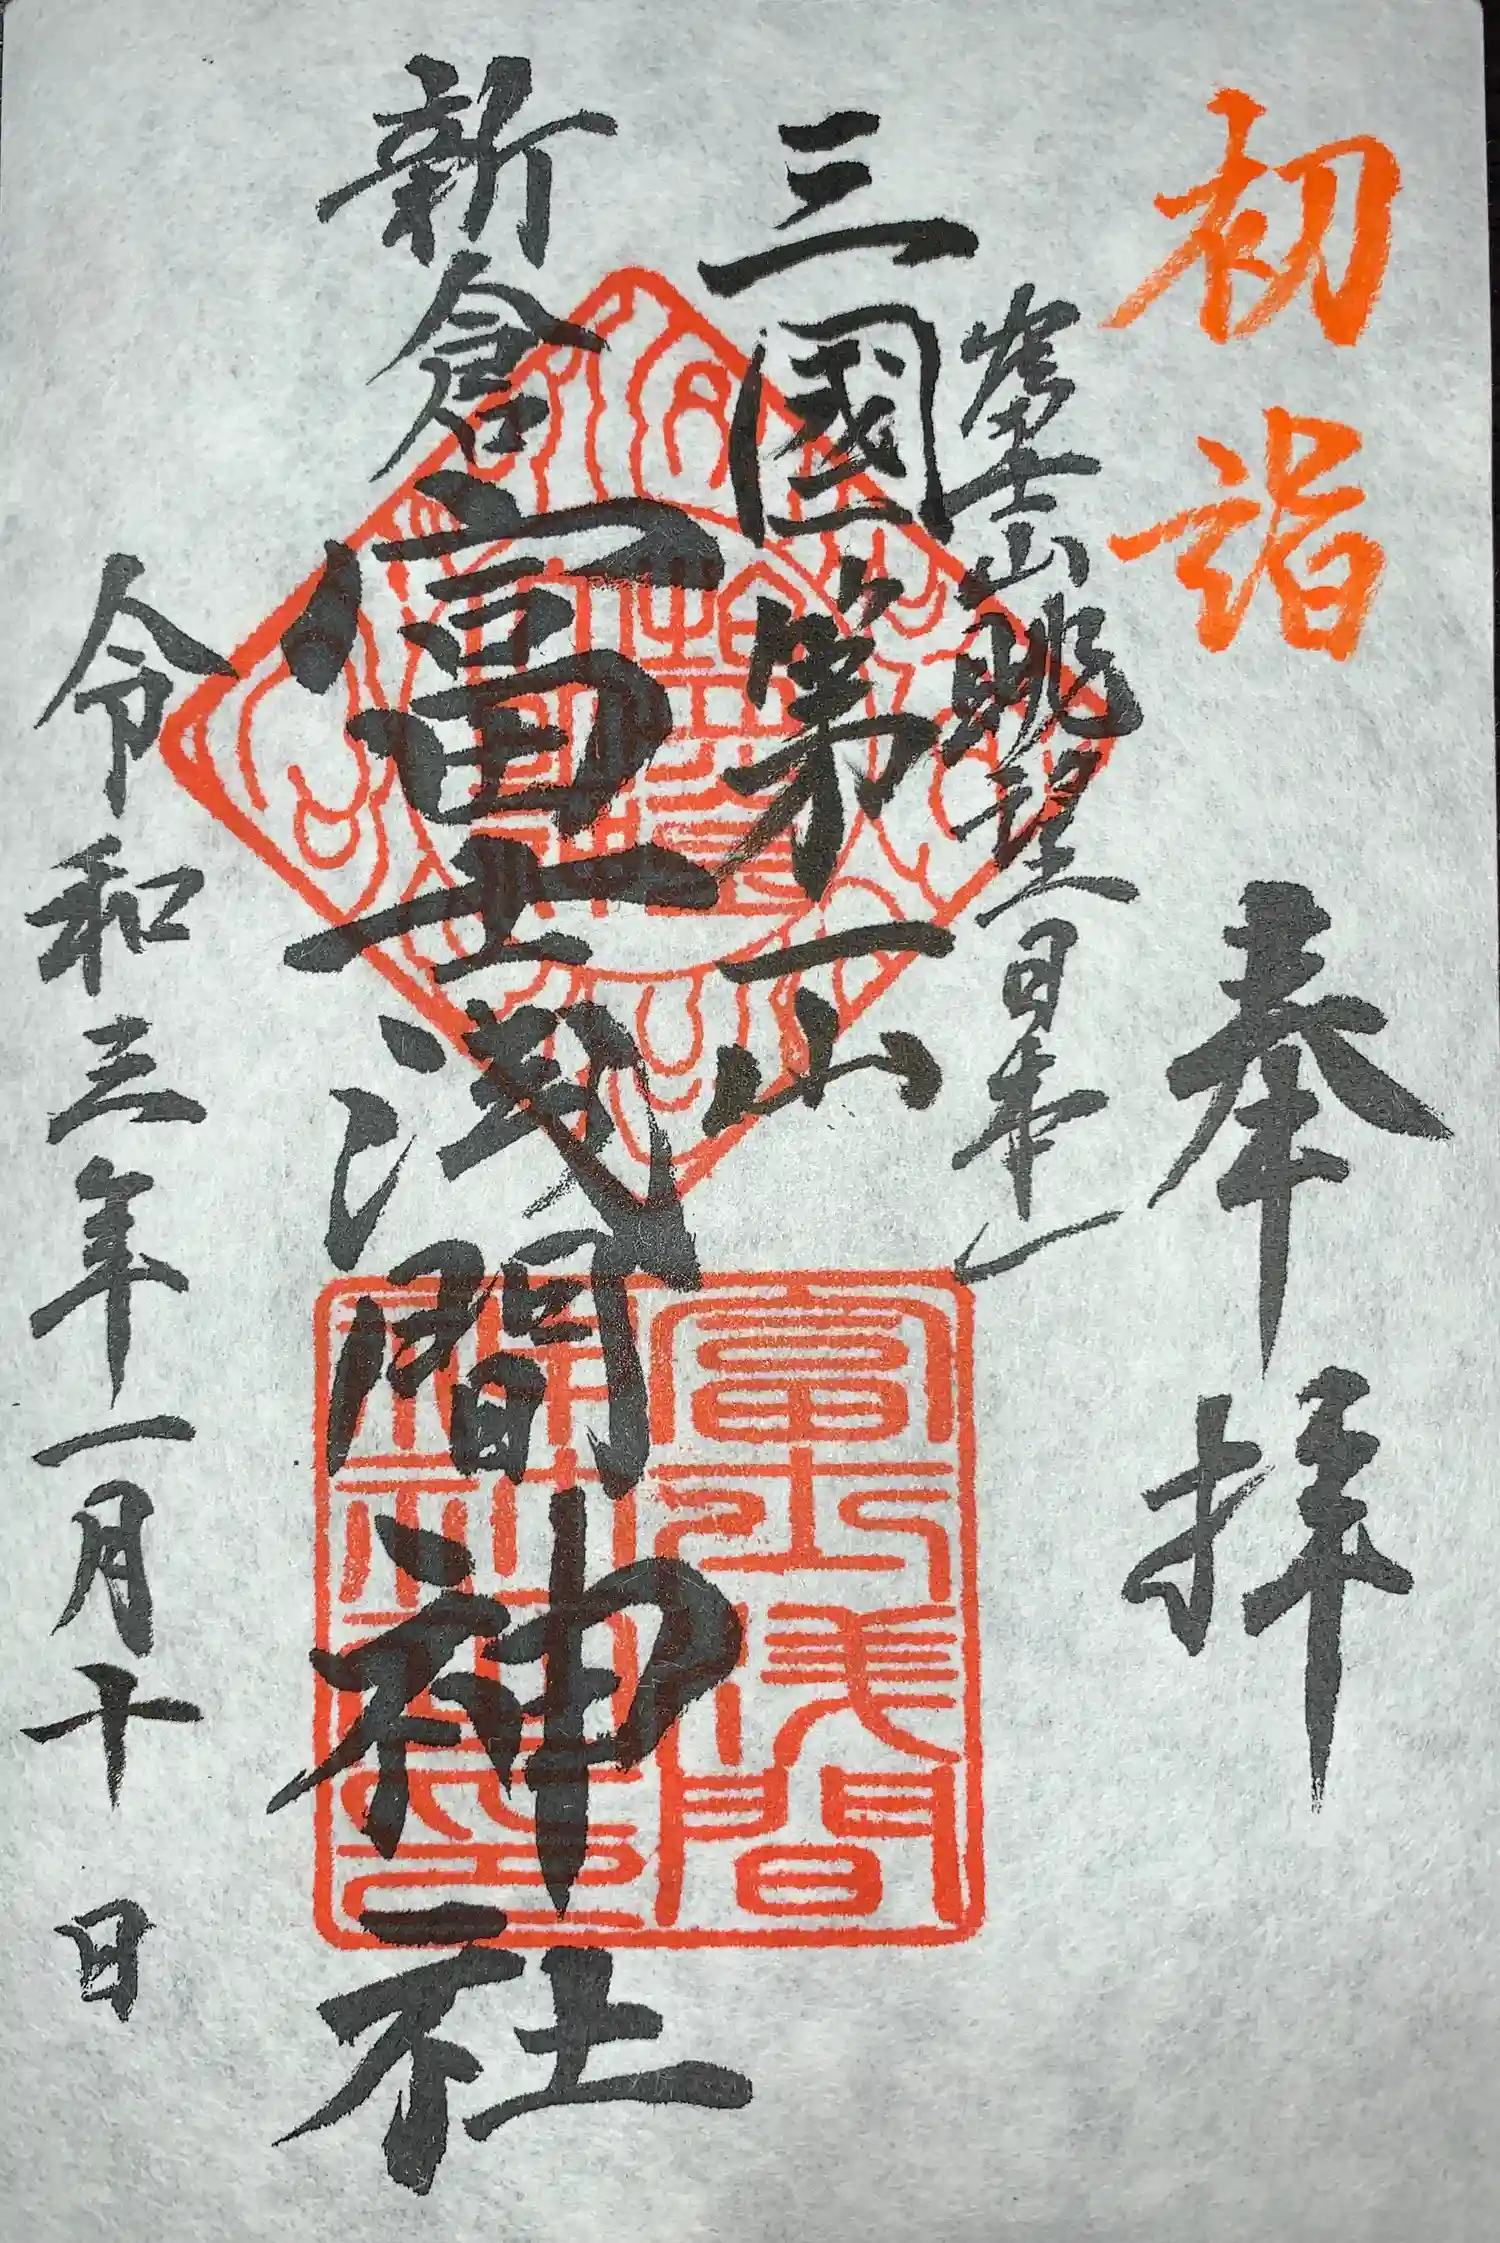 初詣
奉拝
富士山眺望日本一
三國第一山
新倉富士浅間神社
令和三年一月十日
富士浅間
神社